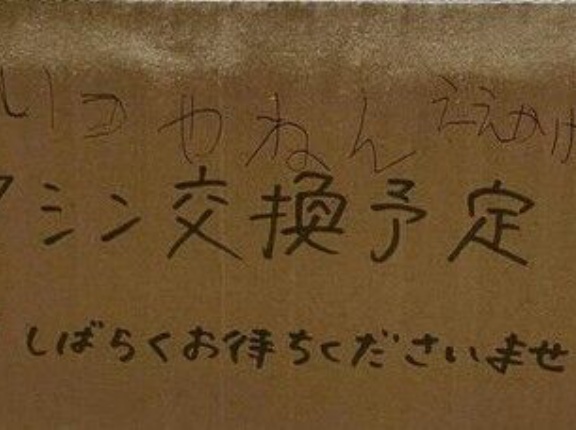 いつやねん ええかげ
シン交換予定
しばらくお待ちくださいませ